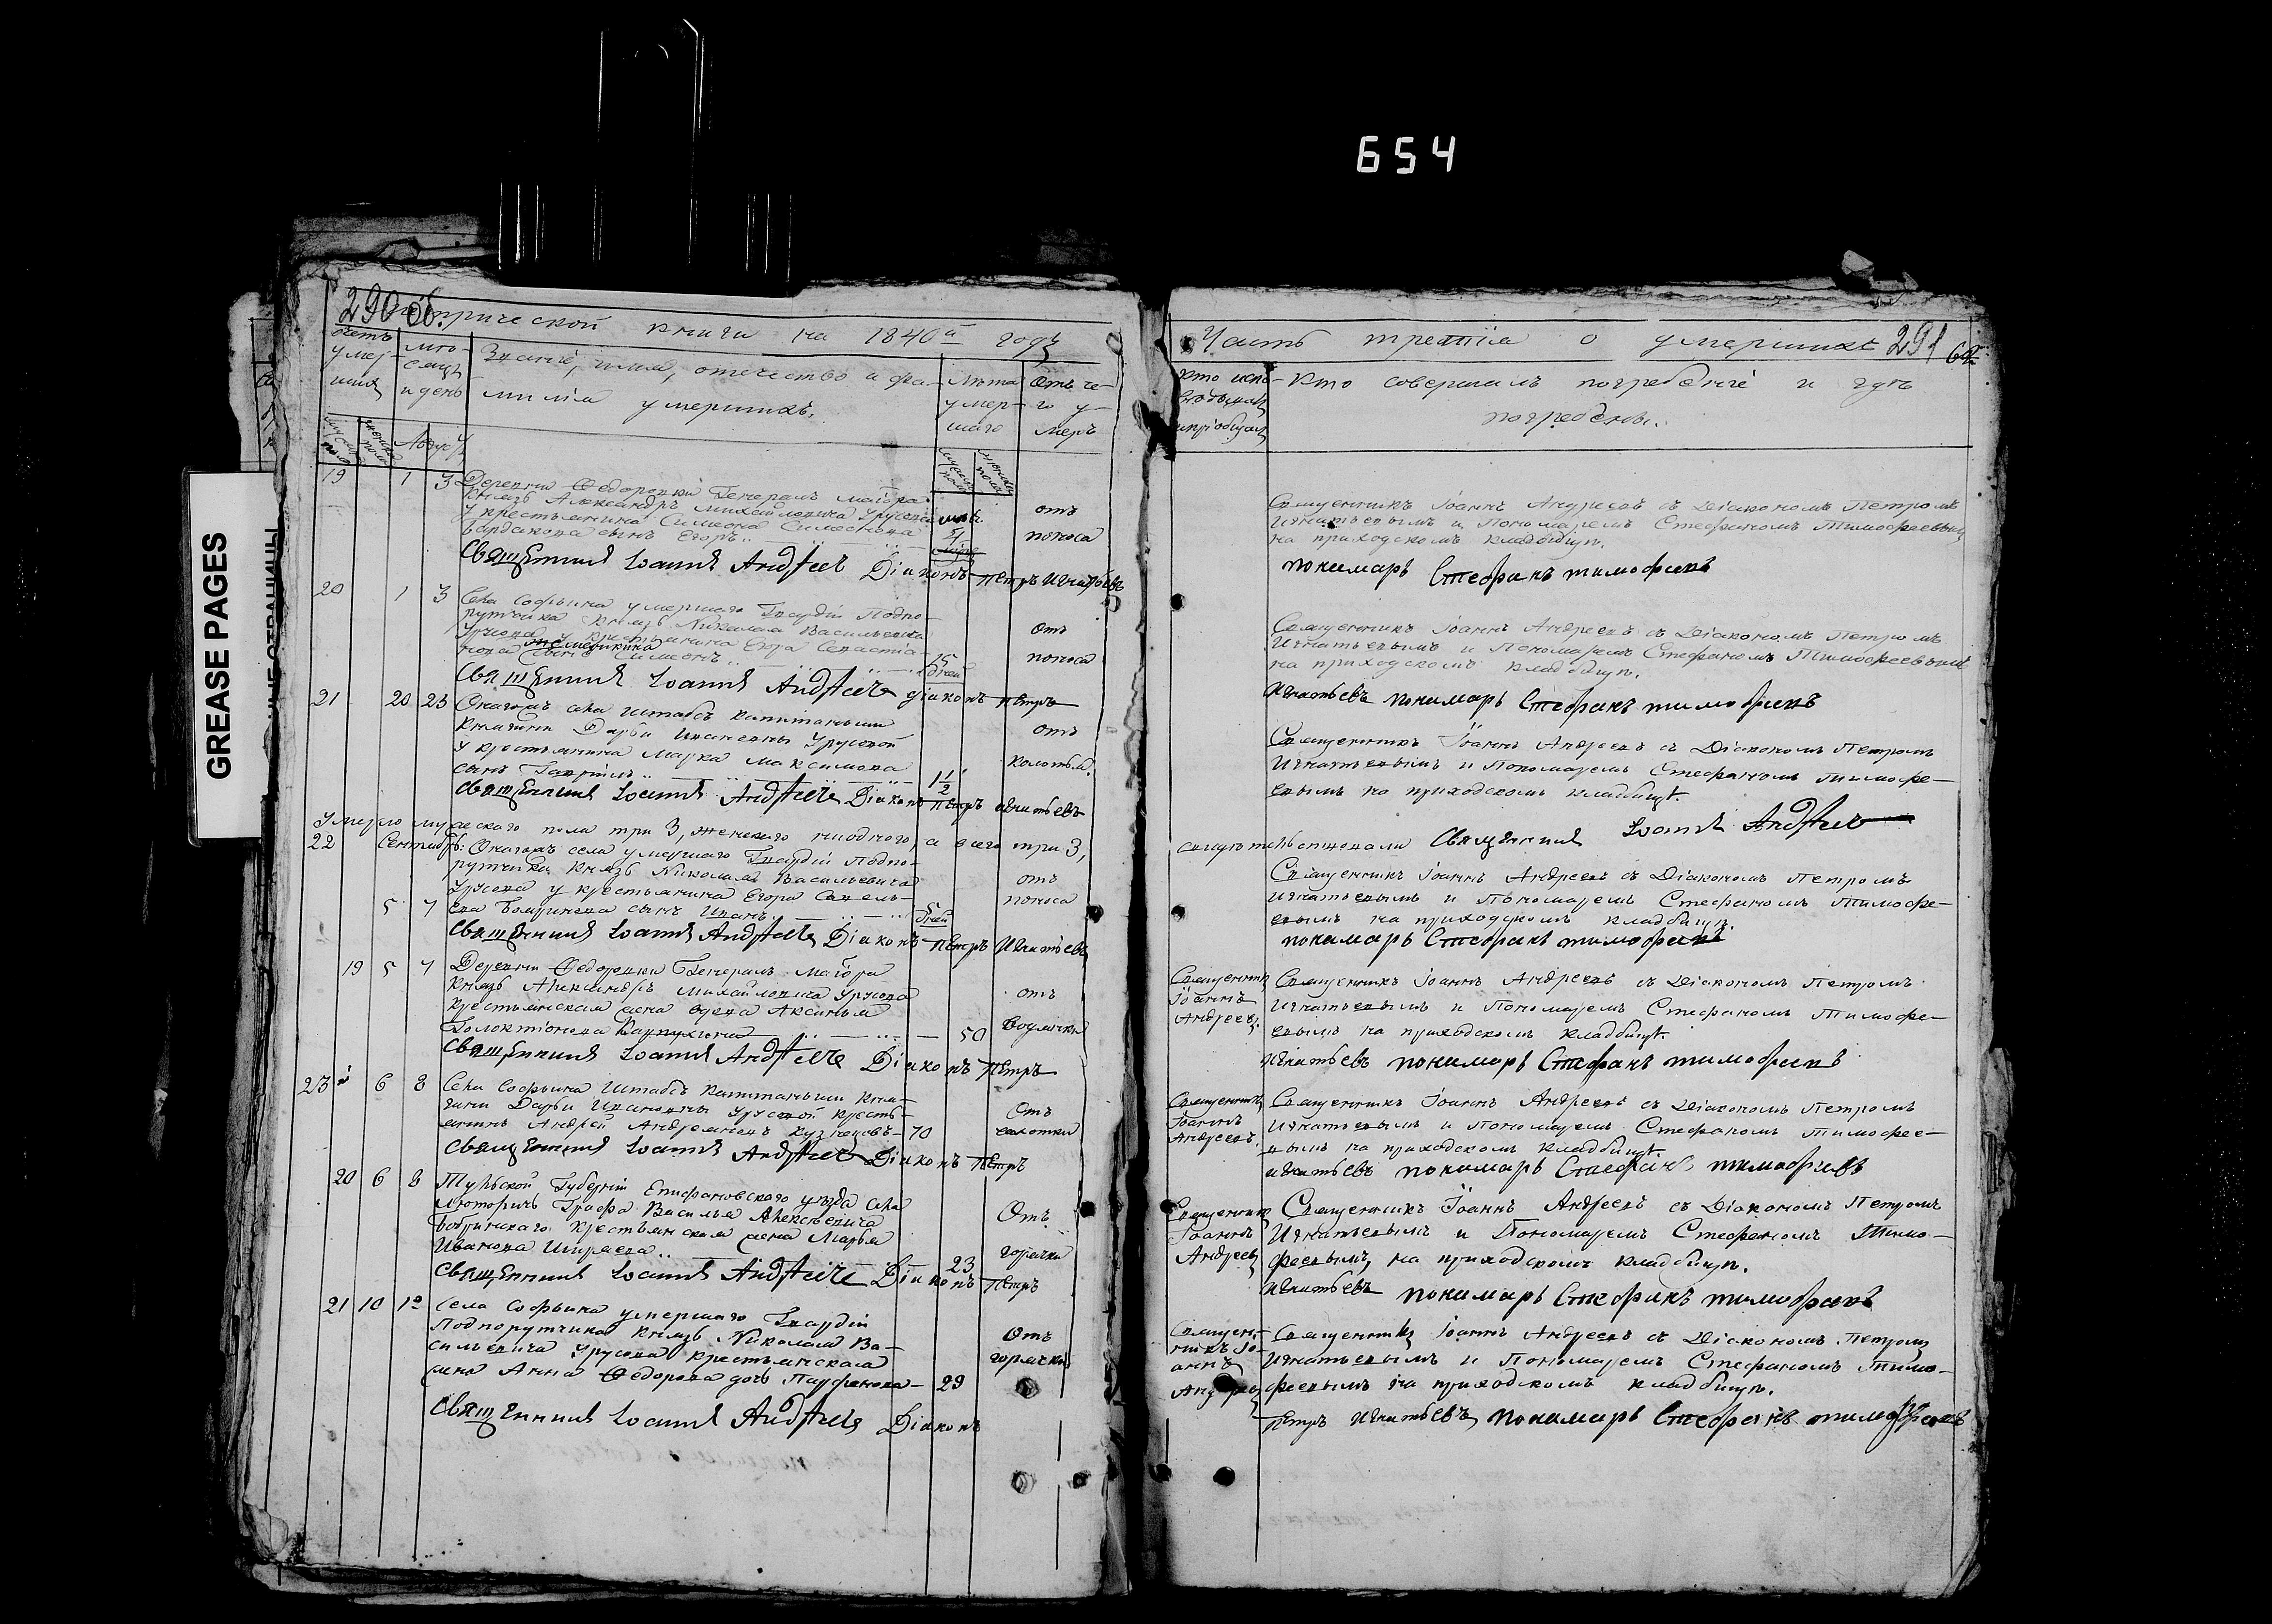 654
GREASE PAGES
290 об.
Метрической книги на 1840й годъ
Званіе, имя, отечество и фа-
миліи умершихъ.
Лѣта
умер-
шаго
Отъ че-
го у-
меръ
19 1 3 Деревни Федоровки Генералъ маіора
Князь Александръ Михайловича Урусова
у крестьянина Симеона Симеонова
сынъ Егоръ
отъ
поноса
Священникъ Іоаннъ Андреевъ Діаконъ Петръ Игнатьевъ
20 1 3 Села Софьина умершаго Гвардіи Подпо-
рутчика Князь Николая Васильевича
Урусова у крестьянина Егора
сынъ Симеонъ
15
дней
отъ
поноса
Священникъ Іоаннъ Андреевъ діаконъ Петръ
21 20 23 села Штабсъ Капитанши
Княгини Дарьи Ивановны Урусовой
у крестьянина Марка Максимова
сынъ Гавріилъ 1 1/2
отъ
Священникъ Іоаннъ Андреевъ Діаконъ Петръ Игнатьевъ
Умерло мужескаго пола три 3, женскаго ниодного, а всего три 3,
22 Сентябрь: села умершаго Гвардіи Подпо-
рутчика Князь Николая Васильевича
Урусова у крестьянина Егора Савель-
5 7 ева сынъ Иванъ 5
дней
отъ
поноса
Священникъ Іоаннъ Андреевъ Діаконъ Петръ Игнатьевъ
19 5 7 Деревни Федоровки Генералъ Маіора
Князь Александръ Михайловича Урусова
крестьянская жена вдова Аксинья
50
отъ
Священникъ Іоаннъ Андреевъ Діаконъ Петръ
23 6 8 Села Софьина Штабсъ Капитанши Кня-
гини Дарьи Ивановны Урусовой кресть-
янинъ Андрей Андреяновъ Кузнецовъ 70
Отъ
чахотки
Священникъ Іоаннъ Андреевъ Діаконъ Петръ
20 6 8 Тульской Губерніи Епифановскаго уѣзда села
Люторичь Графа Василья Алексѣевича
Бобринскаго крестьянская жена Марья
Иванова Ширяева 23
Отъ
горячки
Священникъ Іоаннъ Андреевъ Діаконъ Петръ
21 10 12 Села Софьина умершаго Гвардіи
Подпорутчика Князь Николая Ва-
сильевича Урусова крестьянская
жена Анна Федорова дочь Парфенова 29
Отъ
горячки
Священникъ Іоаннъ Андреевъ Діаконъ
Часть третія о умершихъ 291
Кто испо-
вѣдывалъ
и пріобщалъ
Кто совершалъ погребеніе и гдѣ
погребены.
Священникъ Іоаннъ Андреевъ съ Діакономъ Петромъ
Игнатьевымъ и Пономаремъ Стефаномъ Тимофеевымъ
на приходскомъ кладбищѣ.
пономарь Стефанъ тимофеевъ
Священникъ Іоаннъ Андреевъ съ Діакономъ Петромъ
Игнатьевымъ и Пономаремъ Стефаномъ Тимофеевымъ
на приходскомъ кладбищѣ.
Игнатьевъ пономарь Стефанъ тимофеевъ
Священникъ Іоаннъ Андреевъ съ Діакономъ Петромъ
Игнатьевымъ и Пономаремъ Стефаномъ Тимофе-
евымъ на приходскомъ кладбищѣ.
Священникъ Іоаннъ Андреевъ
Священникъ Іоаннъ Андреевъ съ Діакономъ Петромъ
Игнатьевымъ и Пономаремъ Стефаномъ Тимофе-
евымъ на приходскомъ кладбищѣ.
пономарь Стефанъ тимофеевъ
Священникъ
Іоаннъ
Андреевъ.
Священникъ Іоаннъ Андреевъ съ Діакономъ Петромъ
Игнатьевымъ и Пономаремъ Стефаномъ Тимофе-
евымъ на приходскомъ кладбищѣ.
Игнатьевъ пономарь Стефанъ тимофеевъ
Священникъ
Іоаннъ
Андреевъ.
Священникъ Іоаннъ Андреевъ съ Діакономъ Петромъ
Игнатьевымъ и Пономаремъ Стефаномъ Тимофее-
вымъ на приходскомъ кладбищѣ.
Игнатьевъ пономарь Стефанъ тимофеевъ
Священникъ
Іоаннъ
Андреевъ
Священникъ Іоаннъ Андреевъ съ Діакономъ Петромъ
Игнатьевымъ и Пономаремъ Стефаномъ Тимо-
феевымъ, на приходскомъ кладбищѣ.
Игнатьевъ пономарь Стефанъ тимофеевъ
Священ-
никъ Іо-
аннъ
Андреевъ
Священникъ Іоаннъ Андреевъ съ Діакономъ Петромъ
Игнатьевымъ и Пономаремъ Стефаномъ Тимо-
феевымъ на приходскомъ кладбищѣ.
Петръ Игнатьевъ, пономарь Стефанъ тимофеевъ